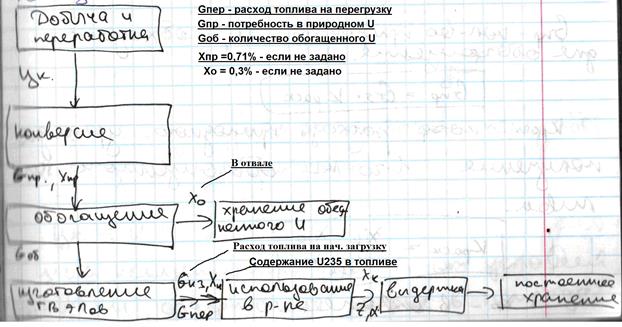 Добыча и
переработка
Gпер - расход топлива на перегрузку
Gпр - потребность в природном U
Gоб - количество обогащенного U
Xпр =0,71% - если не задано
Xo = 0,3% - если не задано
Цк.
конверсия
Gпр., Xпр
В отвале
Xo
обогащение
хранение обед
ненного U
Gоб
Расход топлива на нач. загрузку
Содержание U235 в топливе
изготовление
ТВЭЛов
Gнз, Xн
Gпер
использование
в р-ре
Xк
Z, α
выдержка
постоянное
хранение